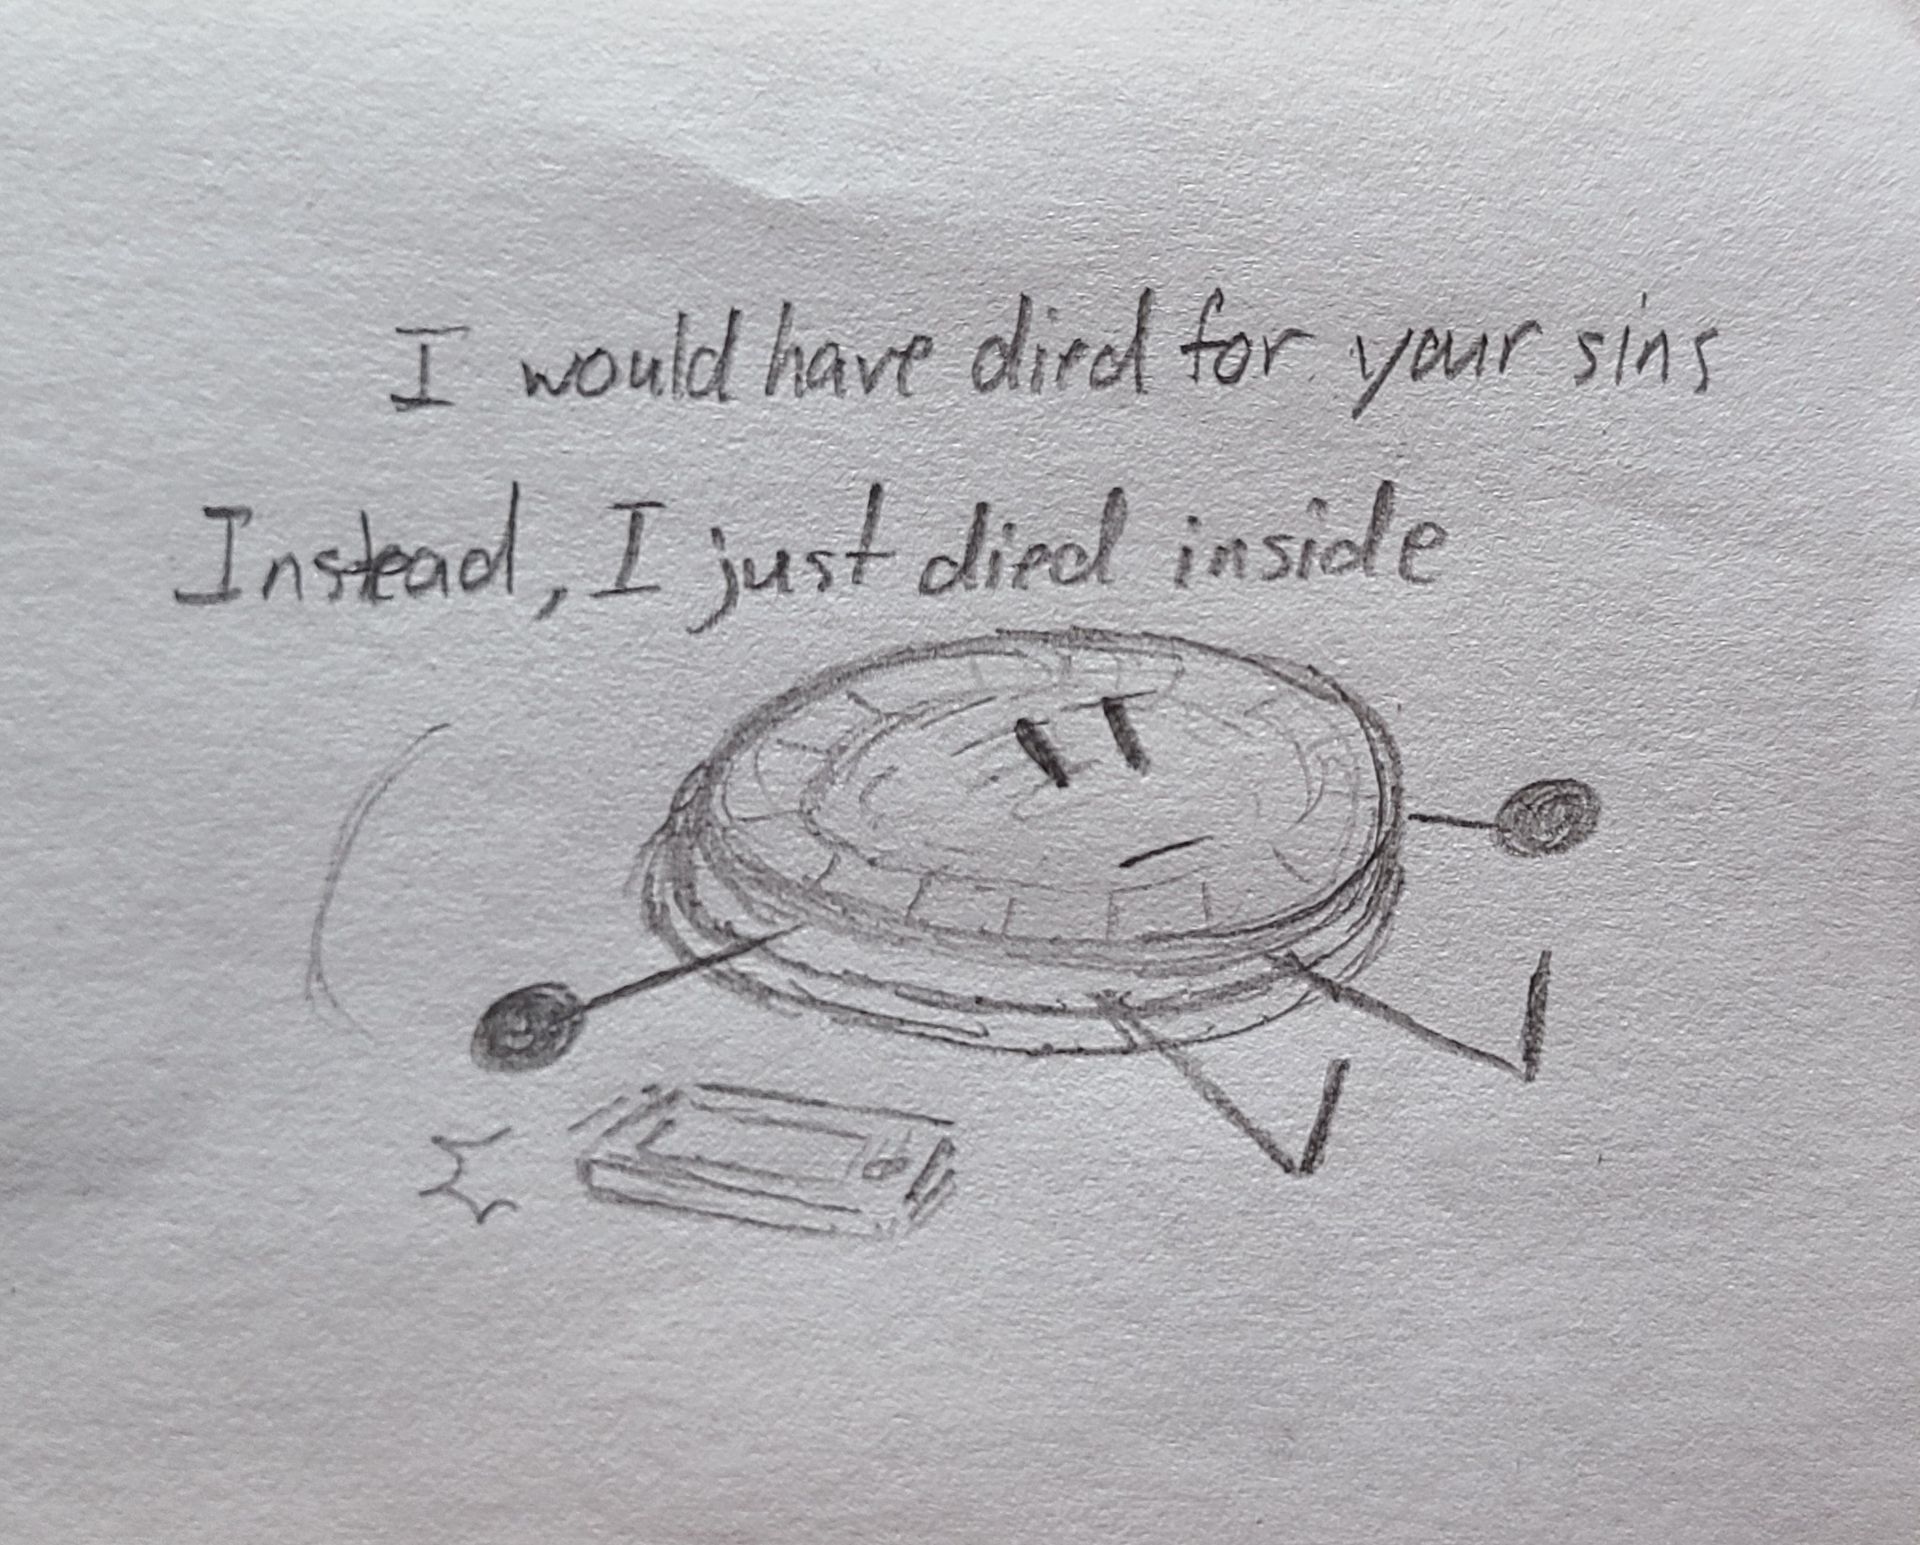 I would have died for your sins
Instead, I just died inside